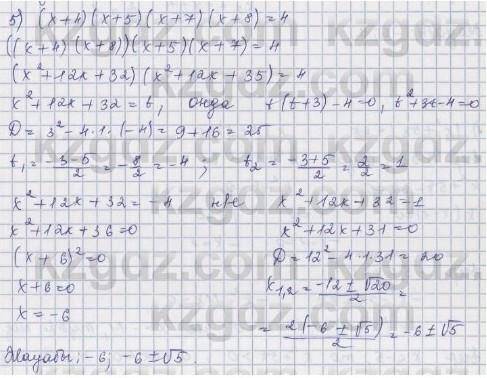 5) (x+4)(x+5)(x+7)(x+8)=4
((x+4)(x+8))(x+5)(x+7)=4
(x²+12x+32)(x²+12x+35)=4
x²+12x+32=t, онда t(t+3)-4=0, t²+3t-4=0
D=3²-4·1·(-4)=9+16=25
t₁=(-3-5)/2=-8/2=-4; t₂=(-3+5)/2=2/2=1
x²+12x+32=-4 н/е x²+12x+32=1
x²+12x+36=0 x²+12x+31=0
(x+6)²=0 D=12²-4·1·31=20
x+6=0 x₁,₂=(-12±√20)/2=
x=-6 =2(-6±√5)/2=-6±√5
Жауабы: -6; -6±√5.
kzgdz.com